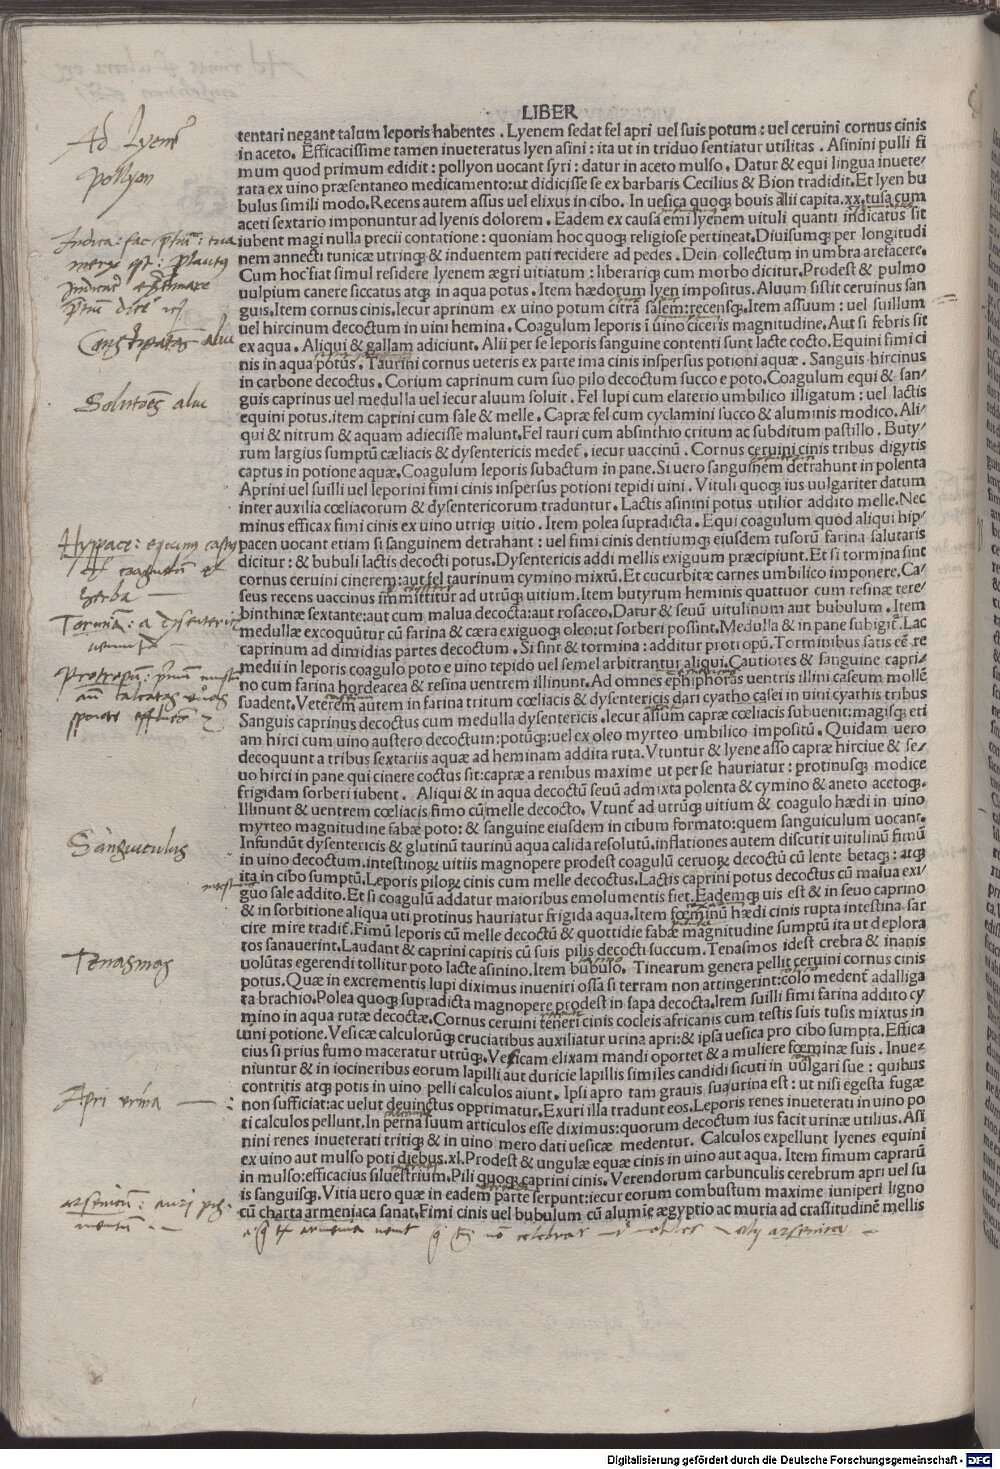 LIBER
tentari negant talum leporis habentes . Lyenem sedat fel apri uel suis potum : uel ceruini cornus cinis
in aceto. Efficacissime tamen inueteratus lyen asini : ita ut in triduo sentiatur utilitas . Asinini pulli fi
mum quod primum edidit : pollyon uocant syri : datur in aceto mulso . Datur & equi lingua inuete/
rata ex uino præsentaneo medicamento:ut didicisse se ex barbaris Cecilius & Bion tradidit.Et lyen bu
bulus simili modo.Recens autem assus uel elixus in cibo. In uesica quoq; bouis alii capita.xx.tusa cum
aceti sextario imponuntur ad lyenis dolorem . Eadem ex causa emi lyenem uituli quanti indicatus sit
iubent magi nulla precii contatione : quoniam hoc quoq; religiose pertineat.Diuisumq; per longitudi
nem annecti tunicæ utrinq; & induentem pati recidere ad pedes . Dein collectum in umbra arefacere.
Cum hoc fiat simul residere lyenem ægri uitiatum : liberariq; cum morbo dicitur.Prodest & pulmo
uulpium canere siccatus atq; in aqua potus . Item hædorum lyen impositus. Aluum sistit ceruinus san
guis.Item cornus cinis.Iecur aprinum ex uino potum citra salem:recensq;.Item assuum : uel suillum
uel hircinum decoctum in uini hemina . Coagulum leporis i uino ciceris magnitudine. Aut si febris sit
ex aqua . Aliqui & gallam adiciunt. Alii per se leporis sanguine contenti sunt lacte cocto. Equini fimi ci
nis in aqua potus . Taurini cornus ueteris ex parte ima cinis inspersus potioni aquæ . Sanguis hircinus
in carbone decoctus . Corium caprinum cum suo pilo decoctum succo e poto. Coagulum equi & san/
guis caprinus uel medulla uel iecur aluum soluit . Fel lupi cum elaterio umbilico illigatum : uel lactis
equini potus.item caprini cum sale & melle . Capræ fel cum cyclamini succo & aluminis modico. Ali/
qui & nitrum & aquam adiecisse malunt.Fel tauri cum absinthio critum ac subditum pastillo . Buty/
rum largius sumptū cæliacis & dysentericis medet . iecur uaccinū . Cornus ceruini cinis tribus digytis
captus in potione aquæ. Coagulum leporis subactum in pane. Si uero sanguinem detrahunt in polenta
Aprini uel suilli uel leporini fimi cinis inspersus potioni tepidi uini . Vituli quoq; ius uulgariter datum
inter auxilia cœliacorum & dysentericorum traduntur . Lactis asinini potus utilior addito melle. Nec
minus efficax fimi cinis ex uino utriq; uitio . Item polea supradicta . Equi coagulum quod aliqui hip/
pacen uocant etiam si sanguinem detrahant : uel fimi cinis dentiumq; eiusdem tusorū farina salutaris
dicitur : & bubuli lactis decocti potus. Dysentericis addi mellis exiguum præcipiunt. Et si tormina sint
cornus ceruini cinerem:aut fel taurinum cymino mixtū.Et cucurbitæ carnes umbilico imponere. Ca/
seus recens uaccinus immittitur ad utrūq; uitium.Item butyrum heminis quattuor cum resinæ tere/
binthinæ sextante:aut cum malua decocta:aut rosaceo. Datur & seuū uitulinum aut bubulum . Item
medullæ excoquūtur cū farina & cæra exiguoq; oleo:ut sorberi possint.Medulla & in pane subigit. Lac
caprinum ad dimidias partes decoctum . Si sint & tormina : additur protropū. Torminibus satis eē re
medii in leporis coagulo poto e uino tepido uel semel arbitrantur aliqui.Cautiores & sanguine capri/
no cum farina hordeacea & resina uentrem illinunt. Ad omnes ephiphoras uentris illini caseum mollē
suadent. Veterem autem in farina tritum cœliacis & dysentericis dari cyatho casei in uini cyathis tribus
Sanguis caprinus decoctus cum medulla dysentericis .Iecur assum capræ cœliacis subuenit:magisq; eti
am hirci cum uino austero decoctum:potūq;:uel ex oleo myrteo umbilico impositū. Quidam uero
decoquunt a tribus sextariis aquæ ad heminam addita ruta. Vtuntur & lyene asso capræ hirciue & se/
uo hirci in pane qui cinere coctus sit:capræ a renibus maxime ut per se hauriatur : protinusq; modice
frigidam sorberi iubent . Aliqui & in aqua decoctū seuū admixta polenta & cymino & aneto acetoq;.
Illinunt & uentrem cœliacis fimo cū melle decocto. Vtunt ad utrūq; uitium & coagulo hædi in uino
myrteo magnitudine fabæ poto: & sanguine eiusdem in cibum formato:quem sanguiculum uocant.
Infundūt dysentericis & glutinū taurinū aqua calida resolutū.inflationes autem discutit uitulinū fimū
in uino decoctum.intestinoꝝ uitiis magnopere prodest coagulū ceruoꝝ decoctū cū lente betaq; : atq;
ita in cibo sumptū.Leporis piloꝝ cinis cum melle decoctus.Lactis caprini potus decoctus cū malua exi/
guo sale addito. Et si coagulū addatur maioribus emolumentis fiet. Eademq; uis est & in seuo caprino
& in sorbitione aliqua uti protinus hauriatur frigida aqua.Item fœminū hædi cinis rupta intestina sar
cire mire tradit. Fimū leporis cū melle decoctū & quottidie fabæ magnitudine sumptū ita ut deplora
tos sanauerint. Laudant & caprini capitis cū suis pilis decocti succum. Tenasmos idest crebra & inanis
uolūtas egerendi tollitur poto lacte asinino. Item bubulo. Tinearum genera pellit ceruini cornus cinis
potus. Quæ in excrementis lupi diximus inueniri ossa si terram non attingerint:colo medent adalliga
ta brachio.Polea quoq; supradicta magnopere prodest in sapa decocta.Item suilli fimi farina addito cy
mino in aqua rutæ decoctæ. Cornus ceruini teneri cinis cocleis africanis cum testis suis tusis mixtus in
uini potione. Vesicæ calculorūq; cruciatibus auxiliatur urina apri:& ipsa uesica pro cibo sumpta. Effica
cius si prius fumo maceratur utrūq;. Vesicam elixam mandi oportet & a muliere fœminæ suis . Inue/
niuntur & in iocineribus eorum lapilli aut duricie lapillis similes candidi sicuti in uulgari sue : quibus
contritis atq; potis in uino pelli calculos aiunt . Ipsi apro tam grauis sua urina est : ut nisi egesta fugæ
non sufficiat:ac uelut deuinctus opprimatur. Exuri illa tradunt eos. Leporis renes inueterati in uino po
ti calculos pellunt.In perna suum articulos esse diximus:quorum decoctum ius facit urinæ utilius. Asi
nini renes inueterati tritiq; & in uino mero dati uesicæ medentur. Calculos expellunt lyenes equini
ex uino aut mulso poti diebus.xl.Prodest & ungulæ equæ cinis in uino aut aqua. Item fimum caprarū
in mulso:efficacius siluestrium. Pili quoq; caprini cinis. Verendorum carbunculis cerebrum apri uel su
is sanguisq;. Vitia uero quæ in eadem parte serpunt:iecur eorum combustum maxime iuniperi ligno
cū charta armeniaca sanat.Fimi cinis uel bubulum cū alumie ægyptio ac muria ad crassitudinē mellis
Ad lyenē
pollyon
Solutōes alui
Sanguiculus
Tenasmos
Apri vrina
Digitalisierung gefördert durch die Deutsche Forschungsgemeinschaft - DFG